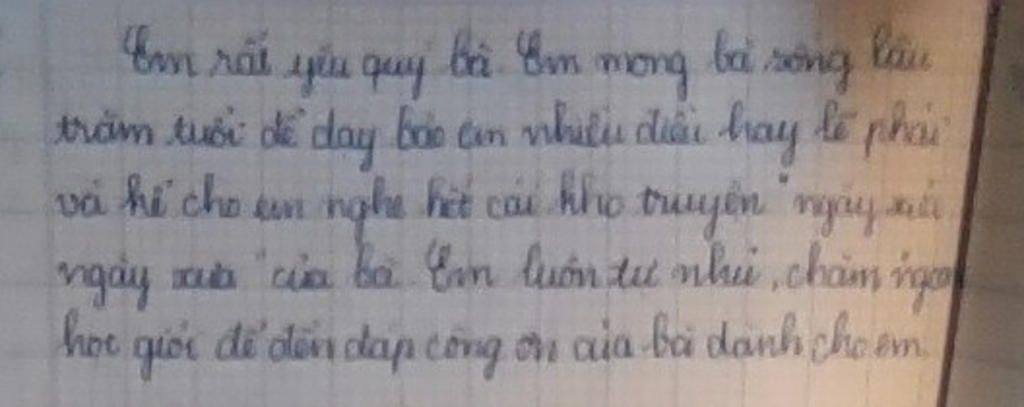 Em rất yêu quý bà. Em mong bà sống lâu
trăm tuổi để dạy bảo em nhiều điều hay lẽ phải
và kể cho em nghe hết cái kho truyện "ngày xửa
ngày xưa" của bà. Em luôn tự nhủ, chăm ngoan
học giỏi để đền đáp công ơn của bà dành cho em.